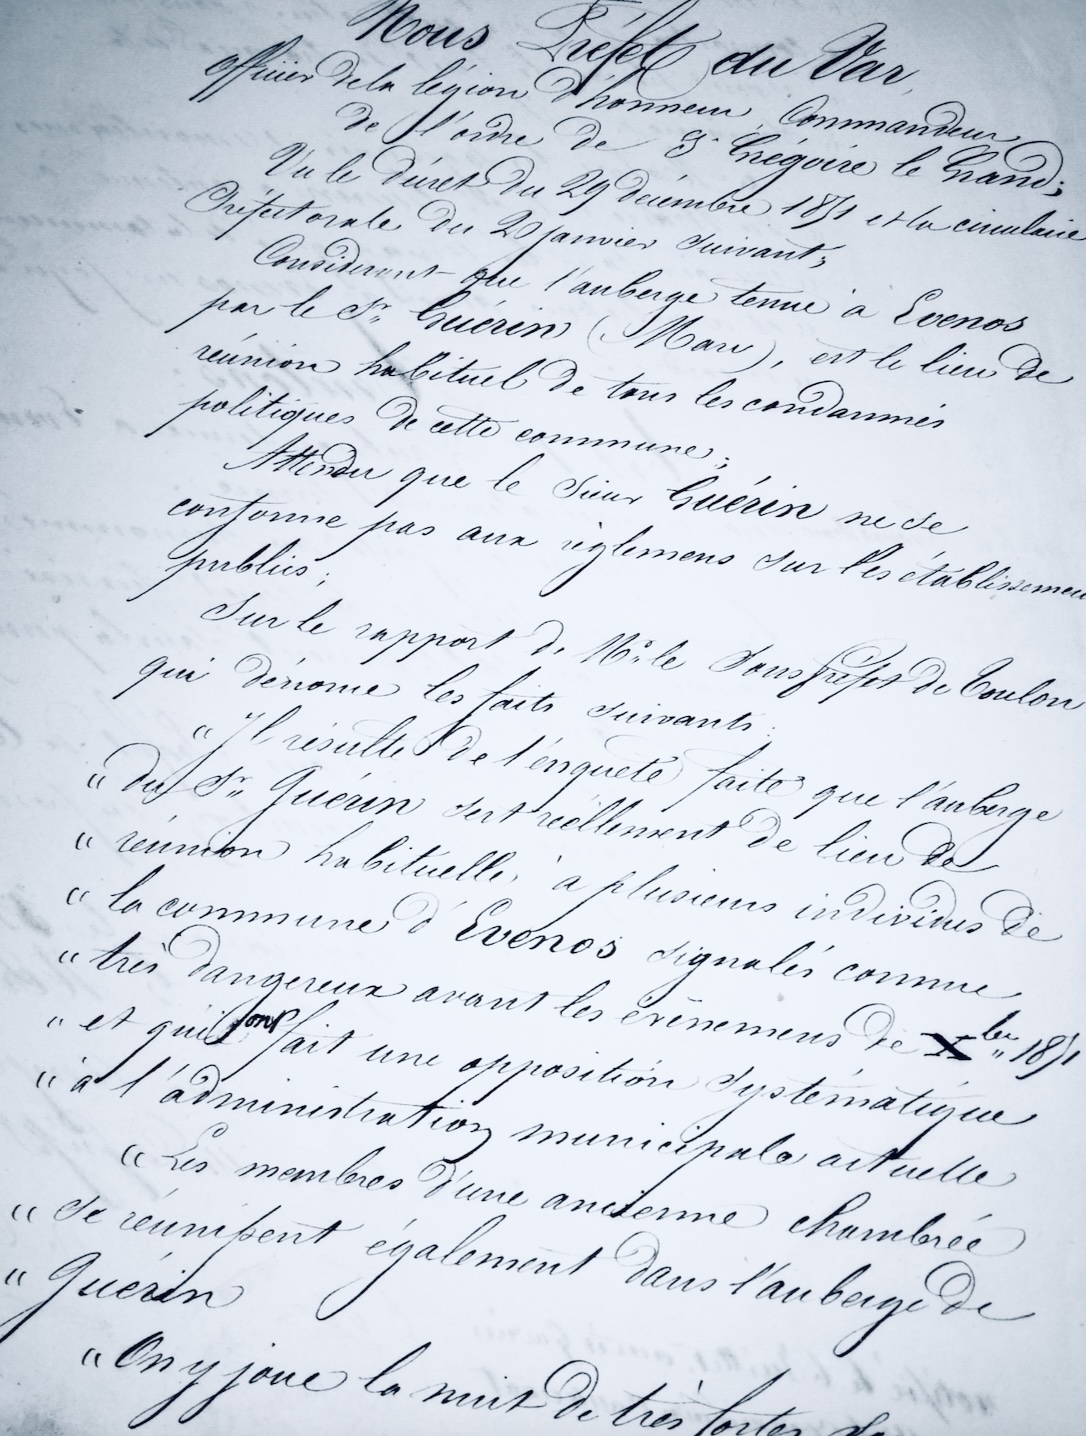 Nous Préfet du Var,
officier de la légion d'honneur, Commandeur
de l'ordre de St Grégoire le Grand;
Vu le décret du 29 décembre 1851 et la circulaire
Préfectorale du 20 janvier suivant;
Considerant que l'auberge tenue à Evenos
par le Sr Guérin (Marc), est le lieu de
réunion habituel de tous les condamnés
politiques de cette commune;
Attendu que le Sieur Guérin ne se
conforme pas aux réglemens sur les établissemen
publics;
Sur le rapport de Mr le Sous Préfet de Toulon
qui dénome les faits suivants:
"Il résulte de l'enquête faite que l'auberge
"du Sr Guérin sert réellement de lieu de
"réunion habituelle, à plusieurs individus de
"la commune d'Evenos signalés comme
"très dangereux avant les évènemens de Xbre 1851
"et qui font fait une opposition systématique
"à l'administration municipale actuelle
"Les membres d'une ancienne chambrée
"se réunissent également dans l'auberge de
"Guérin
"On y joue la nuit de très fortes